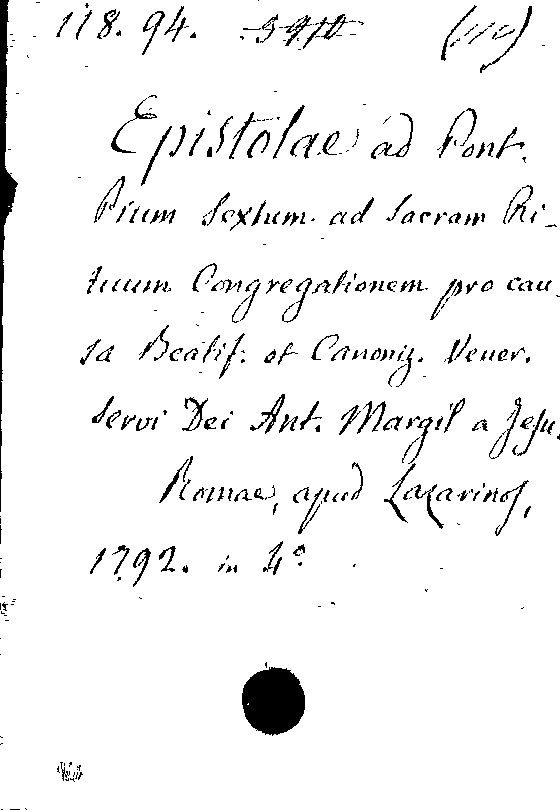 118. 94. 3910 (110)
Epistolae ad Pont.
Pium Sextum ad Sacram Ri-
tuum Congregationem pro cau-
sa Beatif. et Canoniz. Vener.
Servi Dei Ant. Margil a Jesu.
Romae, apud Lazarinos,
1792. in 4º